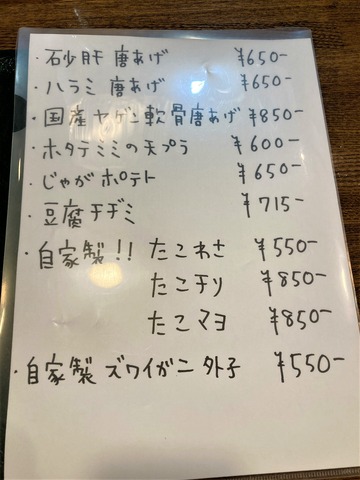 ・石砂肝 唐あげ ¥650-
・ハラミ 唐あげ ¥650-
・国産ヤゲン軟骨唐あげ ¥850-
・ホタテミミの天プラ ¥600-
・じゃがポテト ¥650-
・豆腐チヂミ ¥715-
・自家製!! たこわさ ¥550-
たこチリ ¥850-
たこマヨ ¥850-
・自家製 ズワイガニ 外子 ¥550-